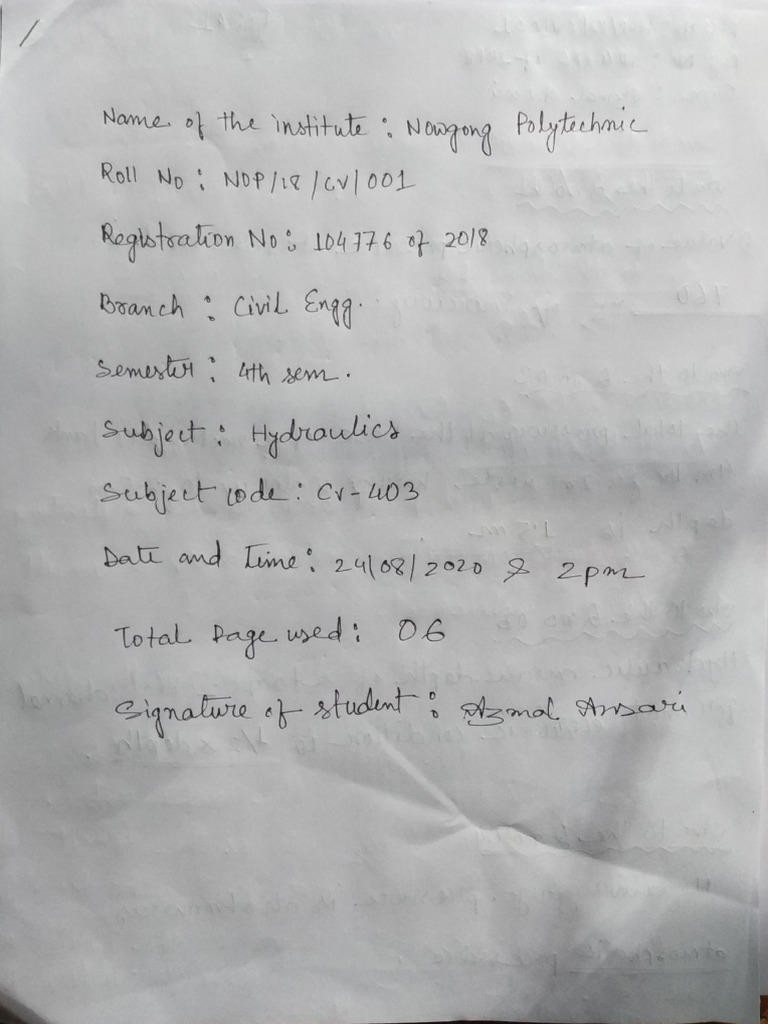 Name of the institute : Nowgong Polytechnic
Roll No : NOP/18/CV/001
Registration No : 104776 of 2018
Branch : Civil Engg.
Semester : 4th sem.
Subject : Hydraulics
Subject code : CV-403
Date and Time : 24/08/2020 & 2pm
Total Page used : 06
Signature of student : Azmal Ansari